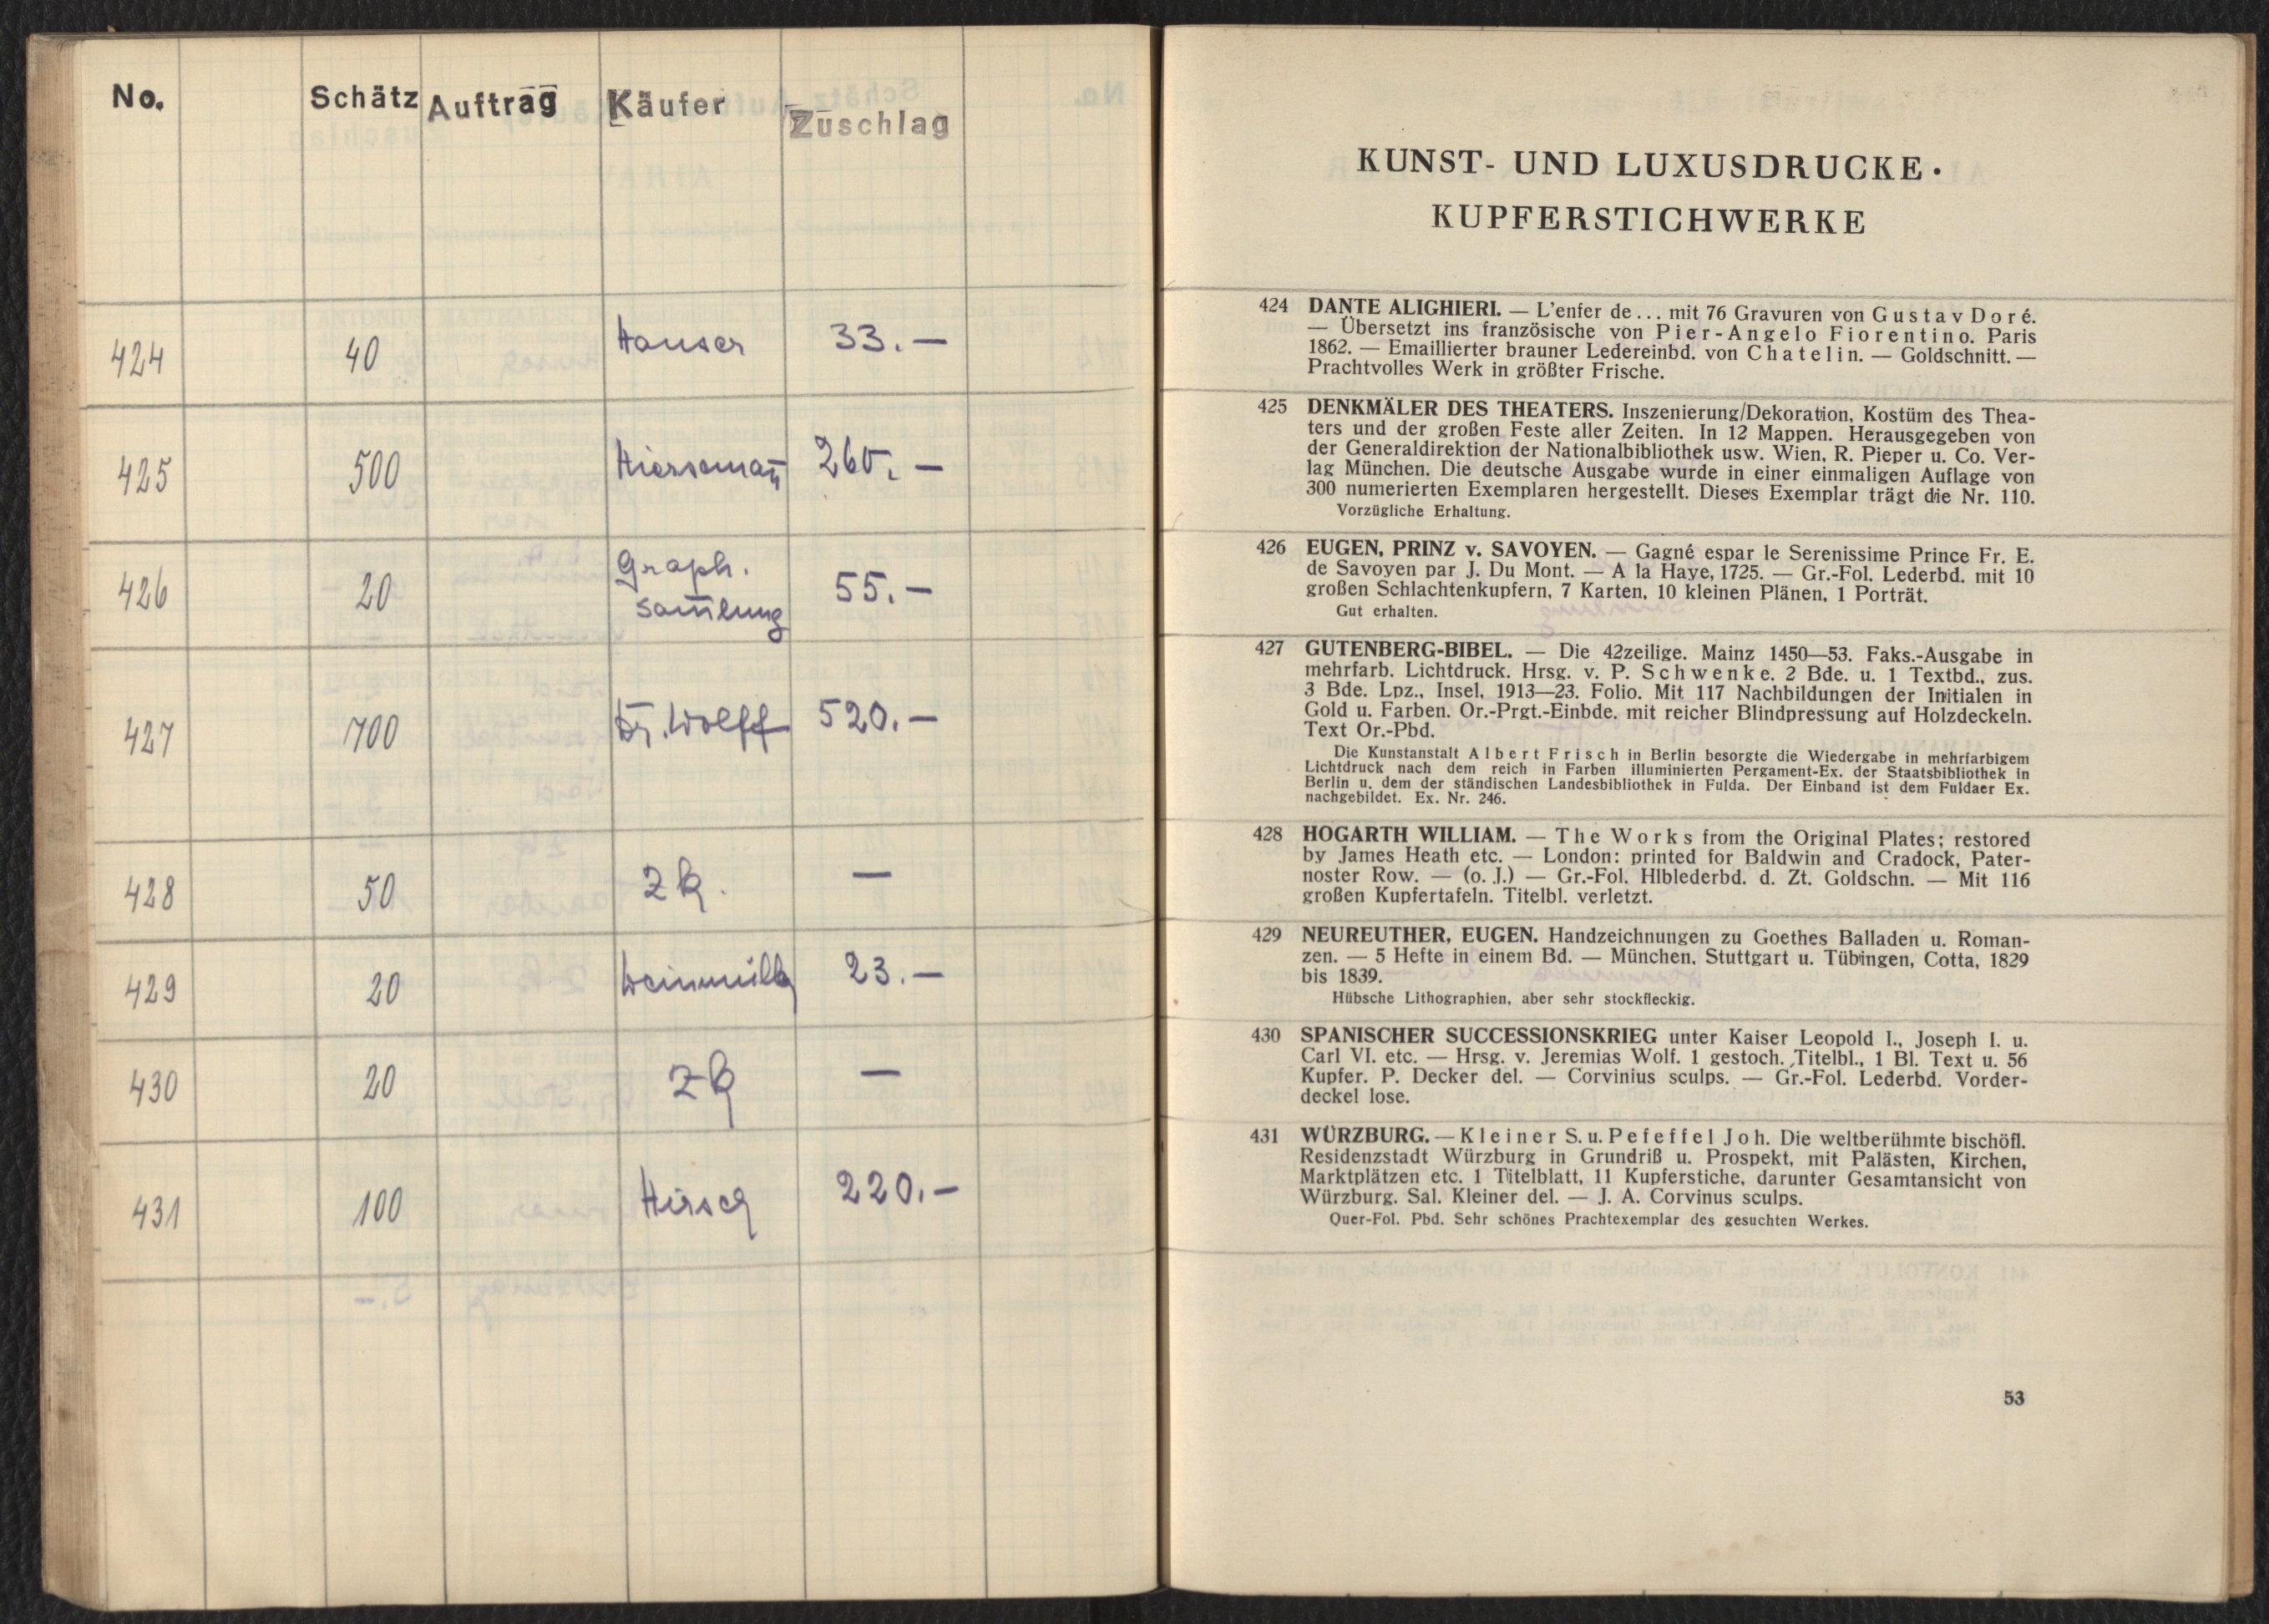 No. Schätz Auftrag Käufer Zuschlag
424 40 Hauser 33.—
425 500 Hiersemañ 260.—
426 20 Graph. 55.—
Sam̄lung
427 700 Dr. Wolff 520.—
428 50 Zk. —
429 20 23.—
430 20 Zk —
431 100 Hirsch 220.—
KUNST- UND LUXUSDRUCKE ·
KUPFERSTICHWERKE
424 DANTE ALIGHIERI. — L'enfer de... mit 76 Gravuren von Gustav Doré.
— Übersetzt ins französische von Pier-Angelo Fiorentino. Paris
1862. — Emaillierter brauner Ledereinbd. von Chatelin. — Goldschnitt. —
Prachtvolles Werk in größter Frische.
425 DENKMÄLER DES THEATERS. Inszenierung/Dekoration, Kostüm des Thea-
ters und der großen Feste aller Zeiten. In 12 Mappen. Herausgegeben von
der Generaldirektion der Nationalbibliothek usw. Wien, R. Pieper u. Co. Ver-
lag München. Die deutsche Ausgabe wurde in einer einmaligen Auflage von
300 numerierten Exemplaren hergestellt. Dieses Exemplar trägt die Nr. 110.
Vorzügliche Erhaltung.
426 EUGEN, PRINZ v. SAVOYEN. — Gagné espar le Serenissime Prince Fr. E.
de Savoyen par J. Du Mont. — A la Haye, 1725. — Gr.-Fol. Lederbd. mit 10
großen Schlachtenkupfern, 7 Karten, 10 kleinen Plänen, 1 Porträt.
Gut erhalten.
427 GUTENBERG-BIBEL. — Die 42zeilige. Mainz 1450—53. Faks.-Ausgabe in
mehrfarb. Lichtdruck. Hrsg. v. P. Schwenke. 2 Bde. u. 1 Textbd., zus.
3 Bde. Lpz., Insel, 1913—23. Folio. Mit 117 Nachbildungen der Initialen in
Gold u. Farben. Or.-Prgt.-Einbde. mit reicher Blindpressung auf Holzdeckeln.
Text Or.-Pbd.
Die Kunstanstalt Albert Frisch in Berlin besorgte die Wiedergabe in mehrfarbigem
Lichtdruck nach dem reich in Farben illuminierten Pergament-Ex. der Staatsbibliothek in
Berlin u. dem der ständischen Landesbibliothek in Fulda. Der Einband ist dem Fuldaer Ex.
nachgebildet. Ex. Nr. 246.
428 HOGARTH WILLIAM. — The Works from the Original Plates; restored
by James Heath etc. — London: printed for Baldwin and Cradock, Pater-
noster Row. — (o. J.) — Gr.-Fol. Hlblederbd. d. Zt. Goldschn. — Mit 116
großen Kupfertafeln. Titelbl. verletzt.
429 NEUREUTHER, EUGEN. Handzeichnungen zu Goethes Balladen u. Roman-
zen. — 5 Hefte in einem Bd. — München, Stuttgart u. Tübingen, Cotta, 1829
bis 1839.
Hübsche Lithographien, aber sehr stockfleckig.
430 SPANISCHER SUCCESSIONSKRIEG unter Kaiser Leopold I., Joseph I. u.
Carl VI. etc. — Hrsg. v. Jeremias Wolf. 1 gestoch. Titelbl., 1 Bl. Text u. 56
Kupfer. P. Decker del. — Corvinius sculps. — Gr.-Fol. Lederbd. Vorder-
deckel lose.
431 WÜRZBURG. — Kleiner S. u. Pefeffel Joh. Die weltberühmte bischöfl.
Residenzstadt Würzburg in Grundriß u. Prospekt, mit Palästen, Kirchen,
Marktplätzen etc. 1 Titelblatt, 11 Kupferstiche, darunter Gesamtansicht von
Würzburg. Sal. Kleiner del. — J. A. Corvinus sculps.
Quer-Fol. Pbd. Sehr schönes Prachtexemplar des gesuchten Werkes.
53